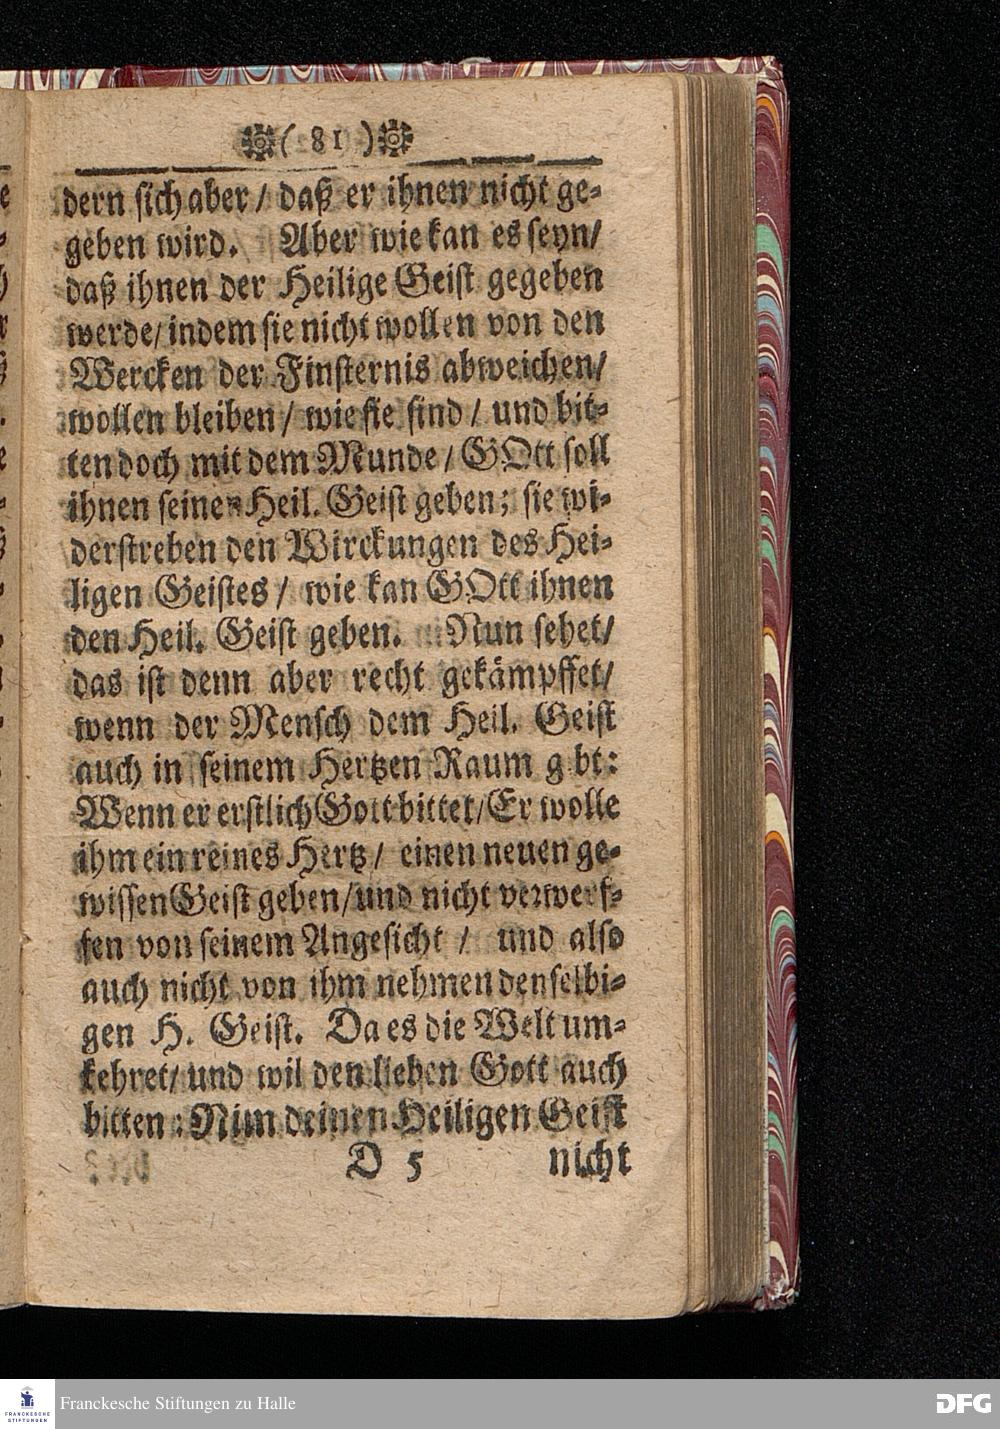 ( 81 )
dern sich aber / daß er ihnen nicht ge-
geben wird. Aber wie kan es seyn/
daß ihnen der Heilige Geist gegeben
werde/ indem sie nicht wollen von den
Wercken der Finsternis abweichen/
wollen bleiben / wie sie sind / und bit-
ten doch mit dem Munde / GOtt soll
ihnen seinen Heil. Geist geben; sie wi-
derstreben den Wirckungen des Hei-
ligen Geistes / wie kan GOtt ihnen
den Heil. Geist geben. Nun sehet/
das ist denn aber recht gekämpffet/
wenn der Mensch dem Heil. Geist
auch in seinem Hertzen Raum g bt:
Wenn er erstlich Gott bittet/ Er wolle
ihm ein reines Hertz / einen neuen ge-
wissen Geist geben/ und nicht verwerf-
fen von seinem Angesicht / und also
auch nicht von ihm nehmen denselbi-
gen H. Geist. Da es die Welt um-
kehret/ und wil den lieben Gott auch
bitten: Nim deinen Heiligen Geist
D 5 nicht
Franckesche Stiftungen zu Halle
FRANCKESCHE
STIFTUNGEN
DFG